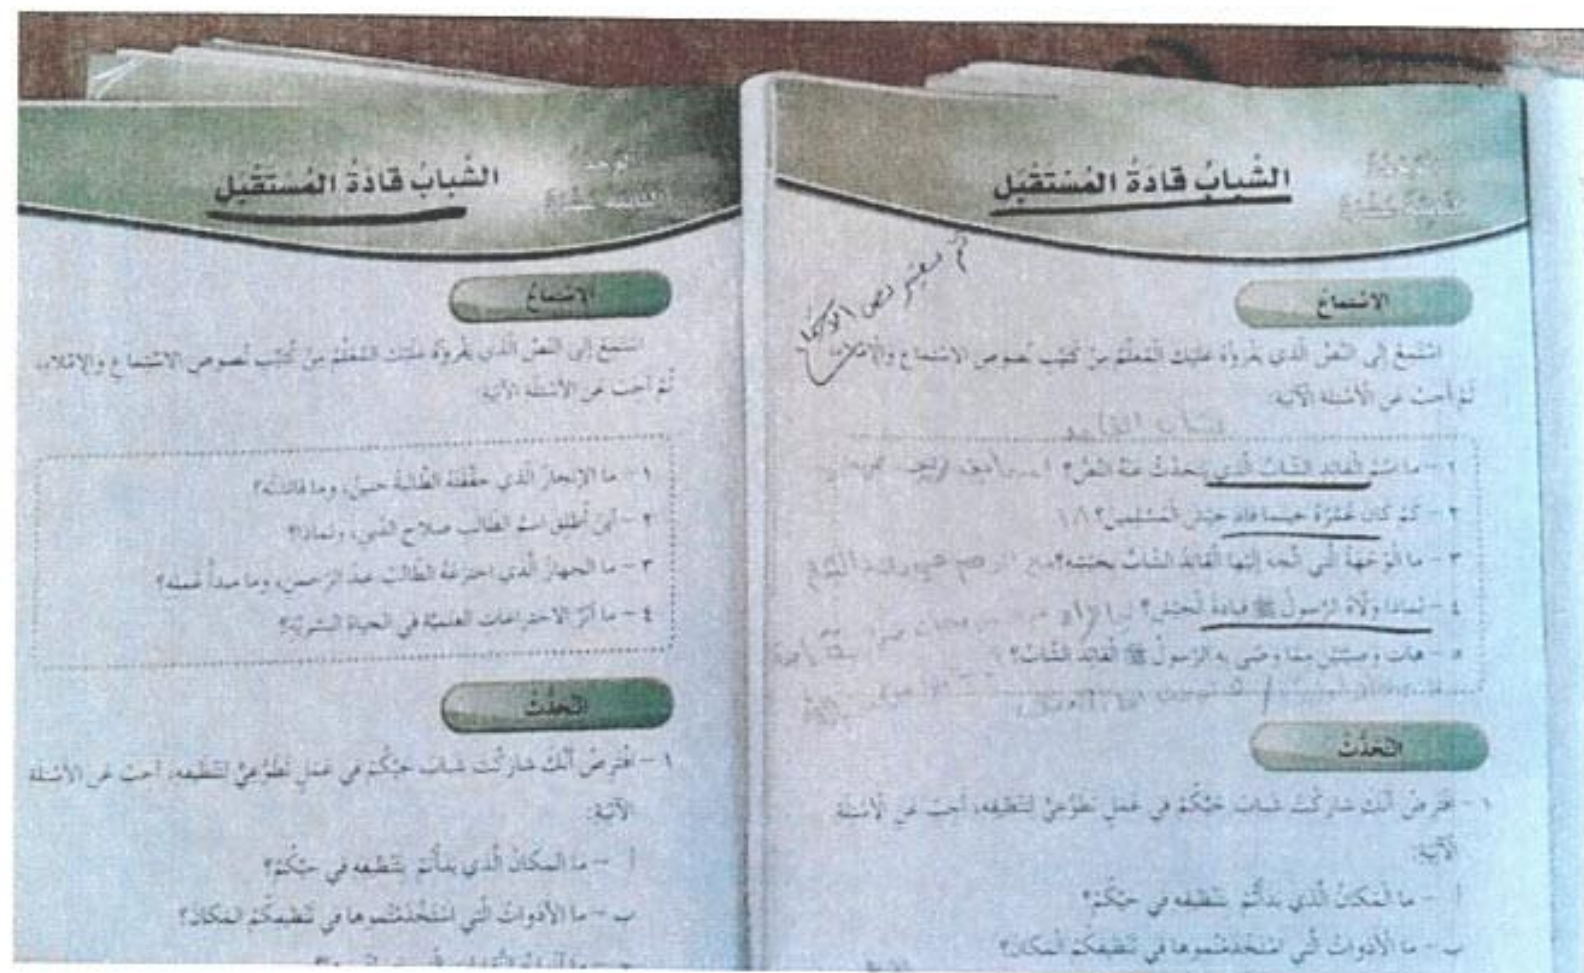 الشَّبابُ قادَةُ المُسْتَقْبَلِ
تم تغيير نص الاستماع
الاسْتماعُ
اسْتَمِعْ إلى النَّصِّ الَّذي يَقْرَؤُهُ عَلَيْكَ الْمُعَلِّمُ مِنْ كُتَيِّبِ نُصوصِ الاسْتماعِ والإمْلاءِ،
ثُمَّ أَجِبْ عَنِ الأَسْئلةِ الآتِيَةِ:
١ – ما اسْمُ الْقائدِ الشّابِّ الَّذي يَتَحَدَّثُ عَنْهُ النَّصُّ؟
٢ – كَمْ كانَ عُمْرُهُ حينَما قادَ جَيْشَ الْمُسْلِمينَ؟ ١٨
٣ – ما الْوِجْهَةُ الَّتي اتَّجَهَ إلَيْها الْقائدُ الشّابُّ بِجَيْشِهِ؟
٤ – لِماذا وَلّاهُ الرَّسولُ ﷺ قِيادَةَ الْجَيْشِ؟
٥ – هاتِ وصِيَّتَيْنِ مِمّا وَصّى بِهِ الرَّسولُ ﷺ الْقائدَ الشّابَّ؟
التَّحَدُّثُ
١ – افْتَرِضْ أَنَّكَ شارَكْتَ شَبابَ حَيِّكُمْ في عَمَلٍ تَطَوُّعِيٍّ لِتَنْظيفِه، أَجِبْ عَنِ الْأَسْئلَةِ
الْآتِيَةِ:
أ – ما الْمَكانُ الَّذي بَدَأْتُمْ بِتَنْظيفِه في حَيِّكُمْ؟
ب – ما الْأَدَواتُ الَّتي اسْتَخْدَمْتُموها في تَنْظيفِكُمُ الْمَكانَ؟
الشَّبابُ قادَةُ المُسْتَقْبَلِ
الاسْتماعُ
اسْتَمِعْ إلى النَّصِّ الَّذي يَقْرَؤُهُ عَلَيْكَ المُعَلِّمُ مِنْ كُتَيِّبِ نُصوصِ الاسْتماعِ والإمْلاءِ،
ثُمَّ أَجِبْ عَنِ الأَسْئلَةِ الآتِيَةِ:
١ – ما الإنْجازُ الَّذي حَقَّقَتْهُ الطّالبَةُ حنين، وما فائدتُه؟
٢ – أَيْنَ أُطْلِقَ اسْمُ الطّالبِ صلاح الدّبي، ولماذا؟
٣ – ما الجهازُ الَّذي اخترعَهُ الطّالبُ عبدُ الرّحمنِ، وما مبدأُ عملِه؟
٤ – ما أثرُ الاختراعاتِ العلميَّةِ في الحياةِ البشريَّةِ؟
التَّحَدُّثُ
١ – افْتَرِضْ أَنَّكَ شارَكْتَ شَبابَ حَيِّكُمْ في عَمَلٍ تَطَوُّعِيٍّ لِتَنْظيفِه، أَجِبْ عَنِ الأَسْئلَةِ
الآتِيَةِ:
أ – ما المَكانُ الَّذي بَدَأْتُمْ بِتَنْظيفِه في حَيِّكُمْ؟
ب – ما الأَدَواتُ الَّتي اسْتَخْدَمْتُموها في تَنْظيفِكُمُ المَكانَ؟